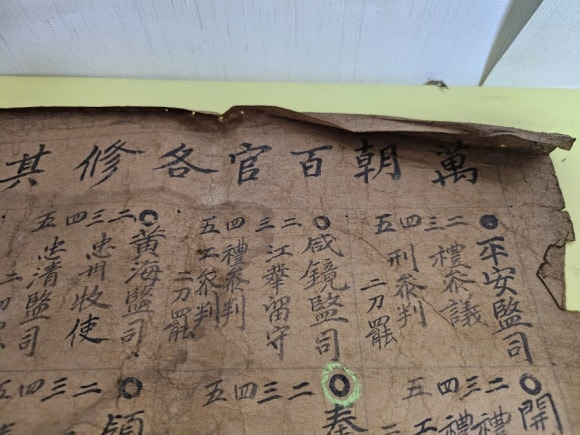 萬朝百官各修其
●平安監司
二禮叅議
三
四刑叅判
五
二刀罷
○咸鏡監司
二
三江華留守
四禮叅判
五工叅判
二刀罷
○黃海監司
二
三忠州牧使
四
五忠清監司
二刀
○開
二禮
三禮
四
五工
○奉
二
三
四
五
○
二
三
四
五